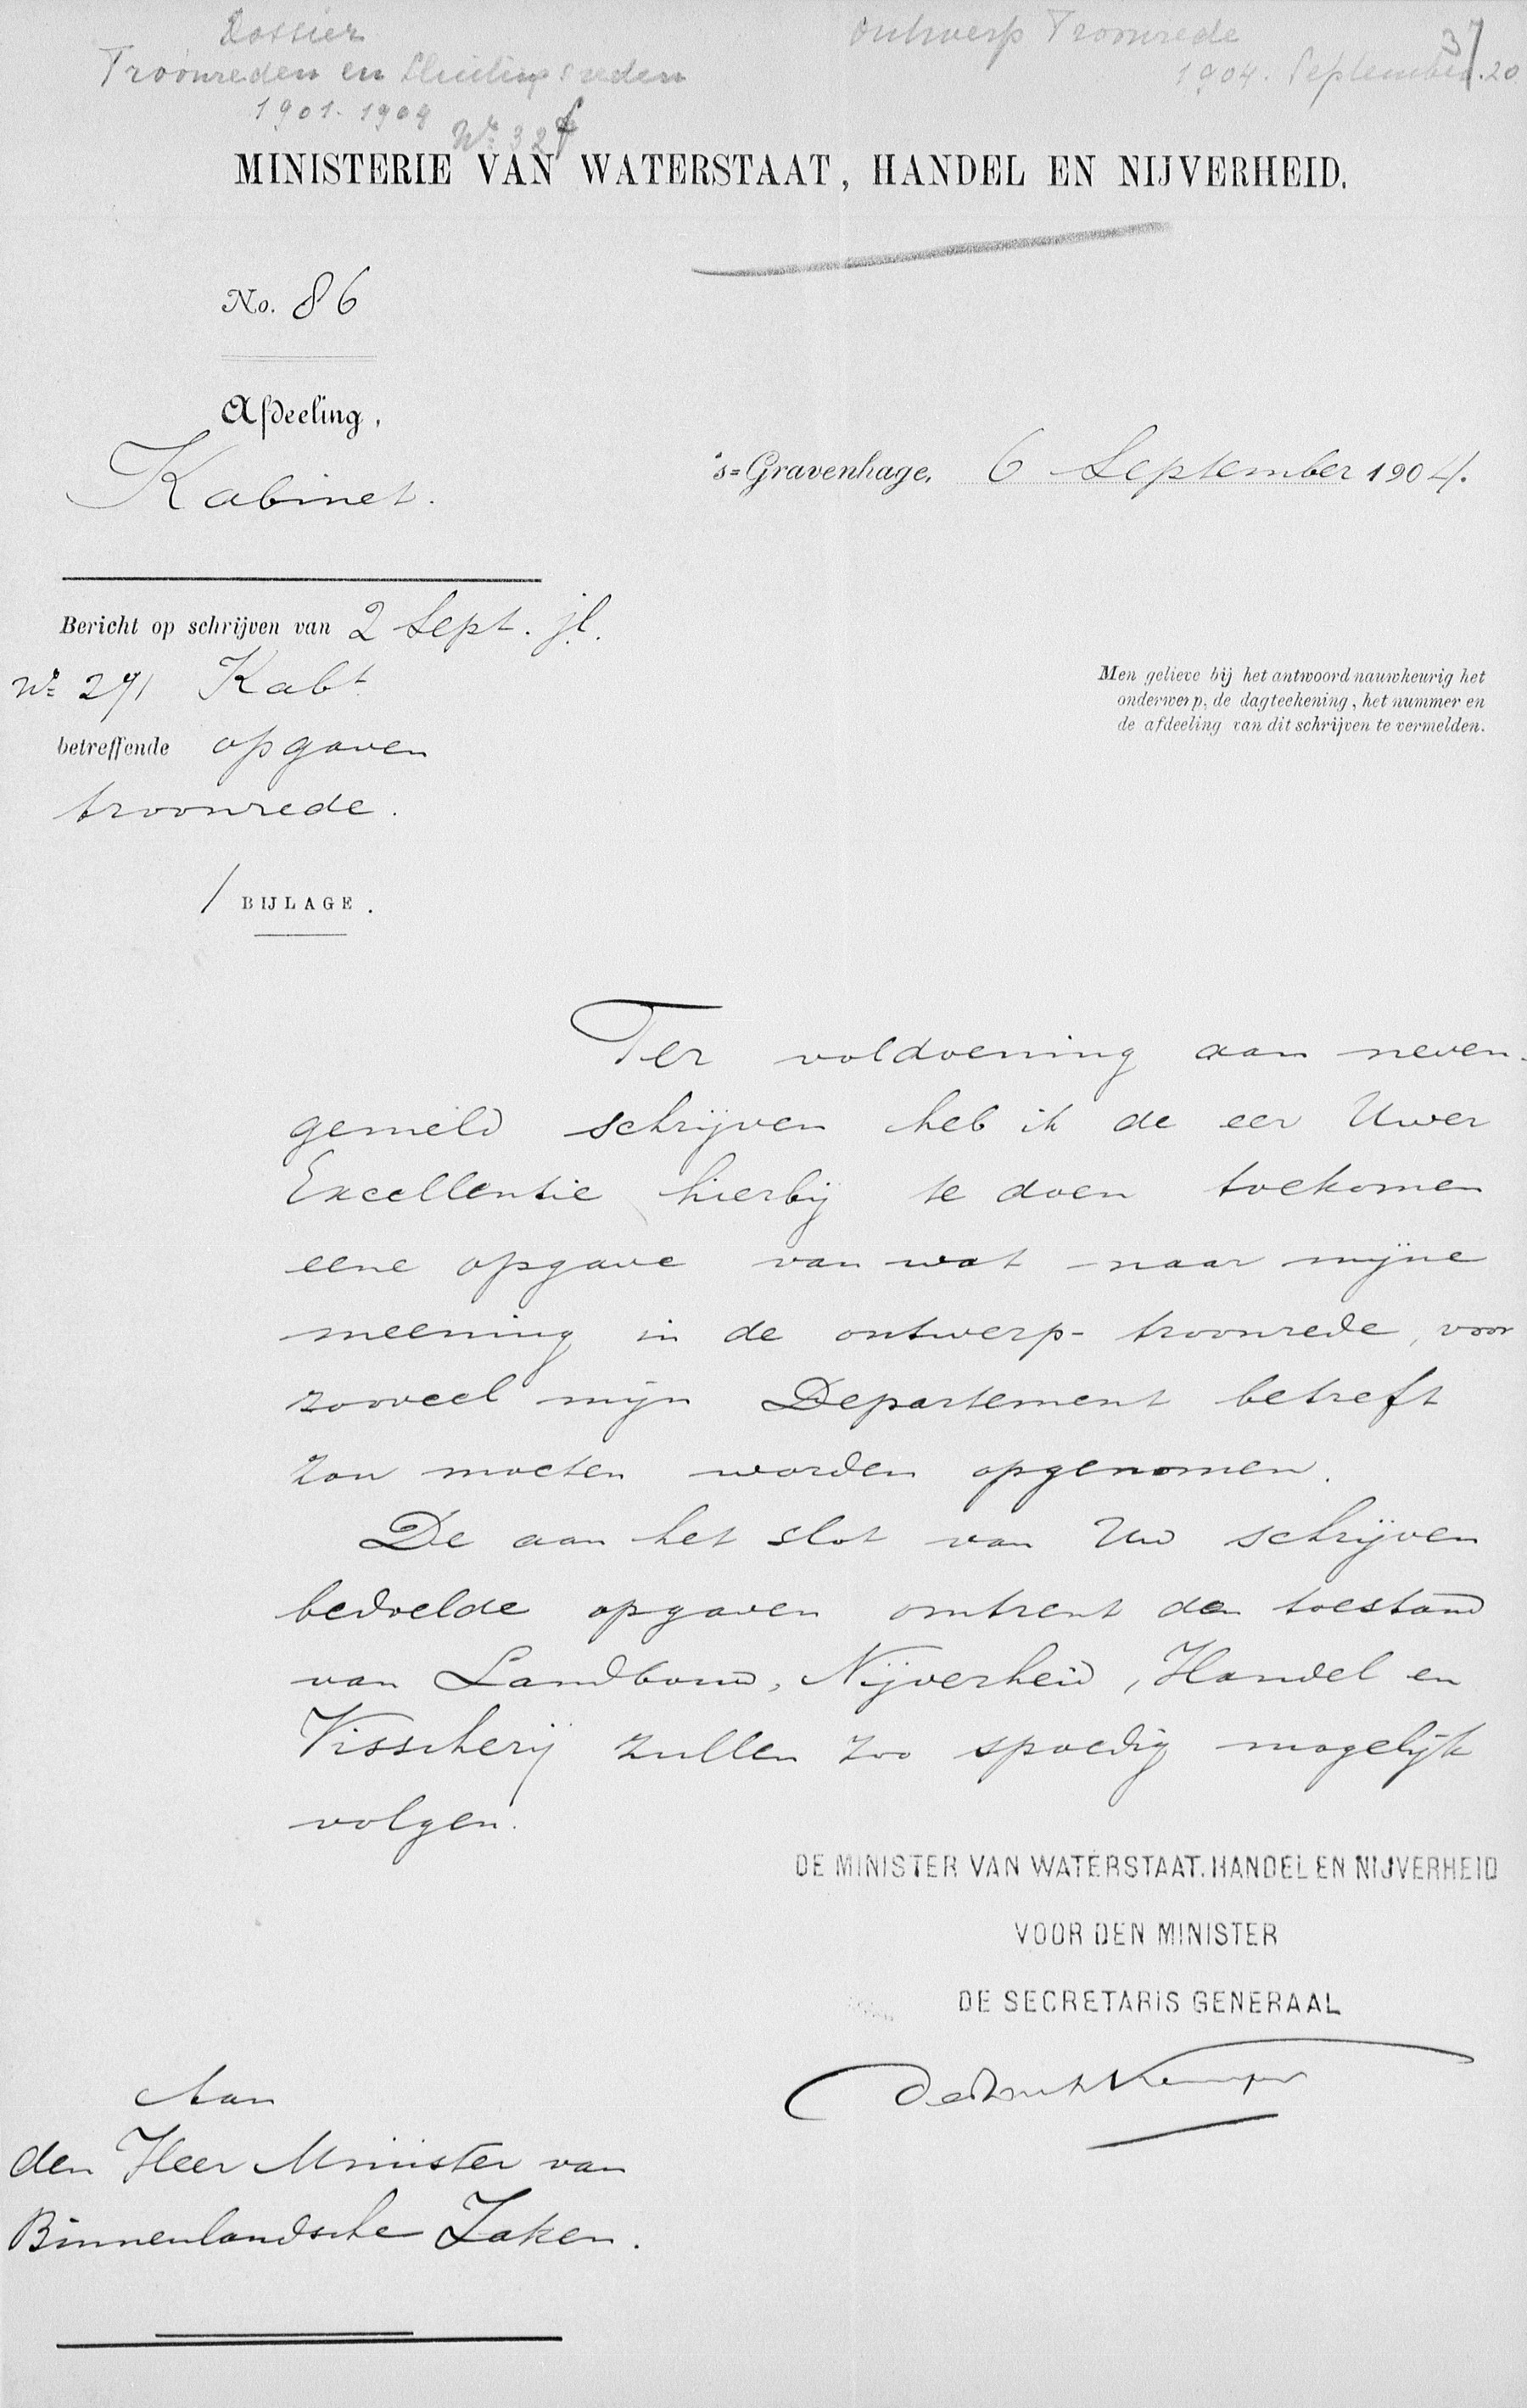 Dossier
Troonreden en Sluitingsreden
1901-1909
No 32 f
Ontwerp Troonrede
1904. September. 20
37
MINISTERIE VAN WATERSTAAT, HANDEL EN NIJVERHEID.
No. 86
Afdeeling,
Kabinet.
's=Gravenhage, 6 September 1904.
Bericht op schrijven van 2 Sept. jl.
No 271 Kabt
betreffende opgaven
troonrede.
1 BIJLAGE.
Men gelieve bij het antwoord nauwkeurig het
onderwerp, de dagteekening, het nummer en
de afdeeling van dit schrijven te vermelden.
Ter voldoening aan neven-
gemeld schrijven heb ik de eer Uwer
Excellentie hierbij te doen toekomen
eene opgave van wat naar mijne
meening in de ontwerp-troonrede, voor
zooveel mijn Departement betreft
zou moeten worden opgenomen.
De aan het slot van Uw schrijven
bedoelde opgaven omtrent den toestand
van Landbouw, Nijverheid, Handel en
Visscherij zullen zoo spoedig mogelijk
volgen.
DE MINISTER VAN WATERSTAAT. HANDEL EN NIJVERHEID
VOOR DEN MINISTER
DE SECRETARIS GENERAAL
Aan
den Heer Minister van
Binnenlandsche Zaken.